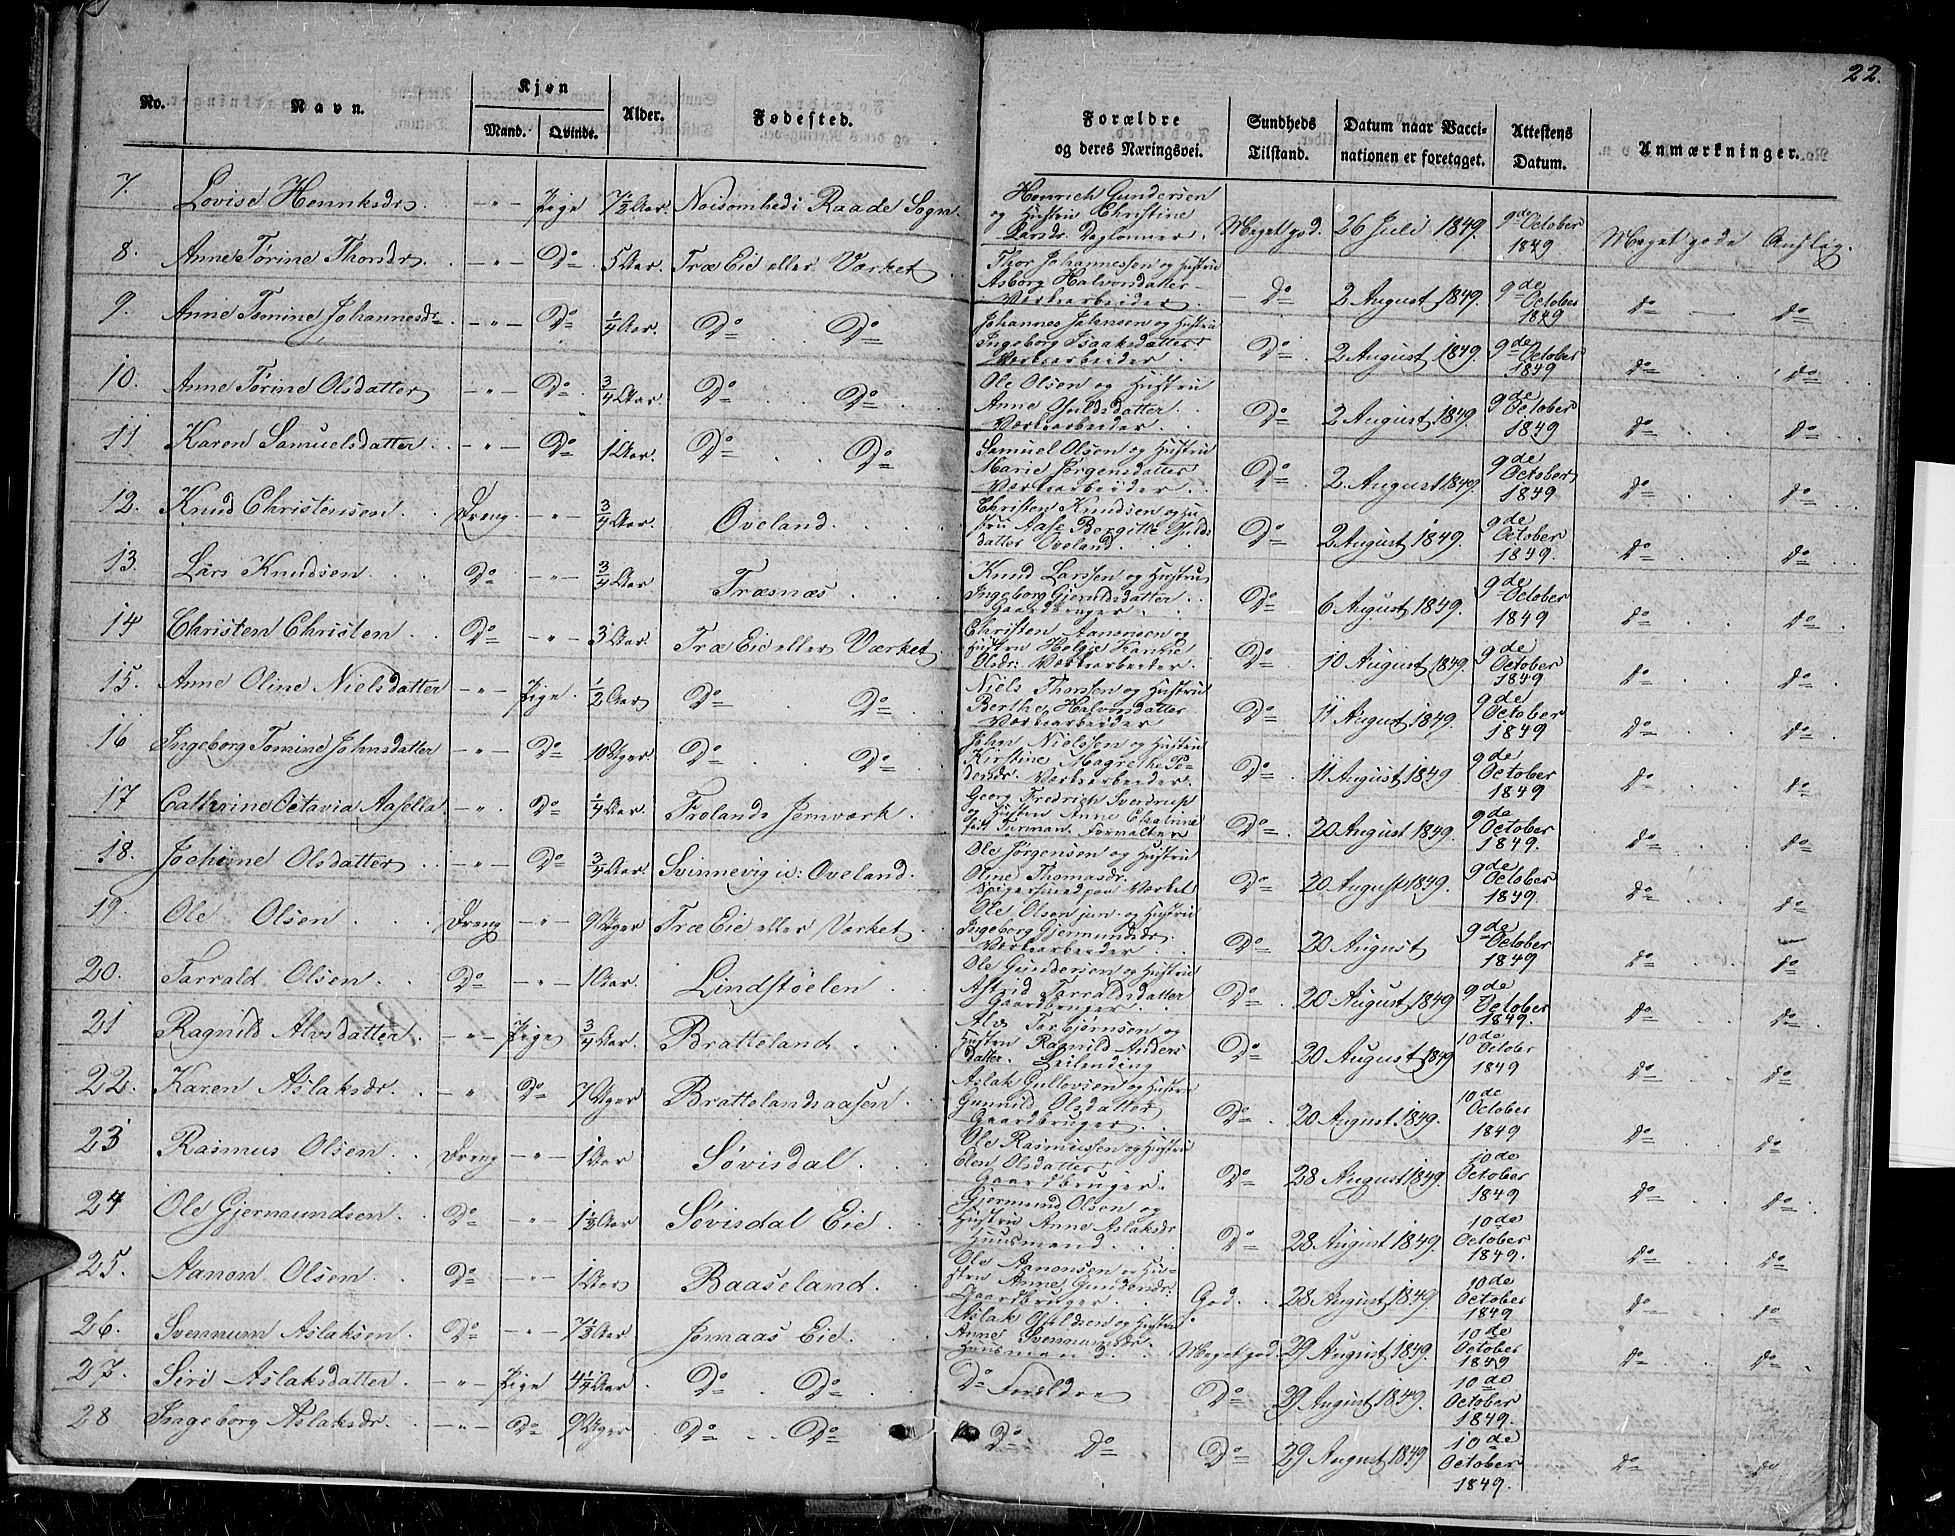 22.
No. Navn. Kjøn Mand. Qvinde. Alder. Fødested. Forældre og deres Næringsvei. Sundheds Tilstand. Datum naar Vaccinationen er foretaget. Attestens Datum. Anmærkninger.
7. Lovise Henriksdr. -"- Pige 7½ Aar. Noisomhed i Raade Sogn. Henrich Gundersen og Hustru Christine Larsdr. Daglønner. Meget god. 26 Juli 1849. 9de October 1849 Meget gode Anslag.
8. Anne Tørine Thorsdr. -"- Do 5 Aar. Træ Eie eller Værket Thor Johannessen og Hustru Asborg Halvorsdatter Værksarbeider. Do 2 August 1849. 9de October 1849 do do
9. Anne Tomine Johannesdr -"- Do ¼ Aar. Do Do Johannes Jakensen og Hustru Ingeborg Isaaksdatter Værksarbeider. Do 2 August 1849. 9de October 1849 do do
10. Anne Tørine Olsdatter -"- Do ¾ Aar. Do Do Ole Olsen og Hustru Anne Guldsdatter. Værksarbeider. Do 2 August 1849. 9de October 1849 do do
11 Karen Samuelsdatter. -"- Do 1 Aar. Do Do Samuel Olsen og Hustru Marie Jørgensdatter Værksarbeider. Do 2. August 1849. 9de October 1849 do do
12. Knud Christensen. Dreng -"- ¾ Aar. Oveland. Christen Knudsen og Hustru Aase Bergitte Guldsdatter Oveland. Do 2 August 1849. 9de October 1849. do do
13. Lars Knudsen. Do -"- ¾ Aar Træsnæs Knud Larssen og Hustru Ingeborg Gjerulsdatter Gaardbruger. Do 6 August 1849. 9de October 1849 do do
14 Christen Christen Do -"- 3 Aar. Træ Eie eller Værket. Christen Aanonsen og Hustru Helgie Kirstie Olsdr. Værksarbeider. Do 10 August 1849. 9de October 1849 do do
15. Anne Oline Nielsdatter -"- Pige. ½ Aar Do Do Niels Thorsen og Hustru Berthe Halvorsdatter Værksarbeider Do 11 August 1849. 9de October 1849 do do
16 Ingeborg Tomine Johnsdatter -"- Do 10 Uger Do Do John Nielssen og Hustru Kirstine Magrethe Pedersdr. Værksarbeider. Do 11 August 1849 9de October 1849 do do
17 Cathrine Octavia Aasella -"- Do ¼ Aar. Frolands Jernværk. Georg Fredrich Sverdrup og Hustru Anne Cathrine født Furman. Forvalter Do 20 August 1849. 9de October 1849. do do
18. Jochime Olsdatter -"- Do ¾ Aar. Svinnevig u: Oveland. Ole Jørgensen og Hustru Oline Thomasdr. Spigersmed paa Værket Do 20 August 1849. 9de October 1849. do do
19. Ole Olsen Dreng -"- 9 Uger Træ Eie eller Værket Ole Olsen jun. og Hustru Ingeborg Gjermundsdr. Værksarbeider Do 20 August 9de October 1849 do do
20. Tarrald Olsen Do -"- 1 Aar. Lindstøelen Ole Gundersen og Hustru Astrid Tarraldsdatter Gaardbruger. Do 20 August 1849 9de October 1849. do do
21 Ragnild Alvsdatter. -"- Pige ¾ Aar. Bratteland Alv Torbjørnsen og Hustru Ragnild Andersdatter. Leilending Do 20 August 1849 10de October 1849 do do
22. Karen Aslaksdr. -"- Do 7 Uger Brattelandsaasen Aslak Gullovsen og Hustru Gunnild Olsdatter Gaardbruger. Do 20 August 1849. 10de October 1849 do do
23 Rasmus Olsen. Dreng -"- 1 Aar Søvisdal. Ole Rasmussen og Hustru Elen Olsdatter Gaardbruger. Do 28 August 1849. 10de October 1849 do do
24 Ole Gjermundsen. Do -"- 1½ Aar Søvisdal Eie. Gjermund Olsen og Hustru Anne Aslaksdr Huusmand. Do 28 August 1849. 10de October 1849. do do
25. Aanon Olsen. Do -"- 1 Aar Baaseland. Ole Aanonsen og Hustru Anne Gundersdr. Gaardbruger. God. 28 August 1849 10de October 1849 do do
26. Svennum Aslaksen. Do -"- 7½ Aar Jomaas Eie. Aslak Guldsen og Hustru Anne Svennumsdr. Huusmand. Meget god. 29 August 1849. 10de October 1849 do do
27. Siri Aslaksdatter. -"- Pige 4¼ Aar. Do Do Do Forældre Do 29 August 1849. 10de October 1849. do do
28 Ingeborg Aslaksdr. -"- Do 9 Uger Do Do Do Do Do 29 August 1849 10de October 1849. do do